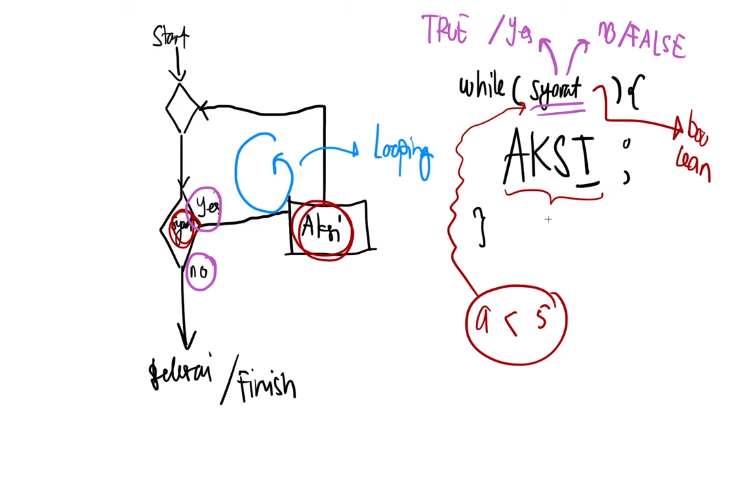 Start
syarat
Yes
no
Aksi
Looping
selesai / Finish
TRUE / Yes
NO/FALSE
while ( syarat ) {
AKSI ;
}
boo
lean
a < 5